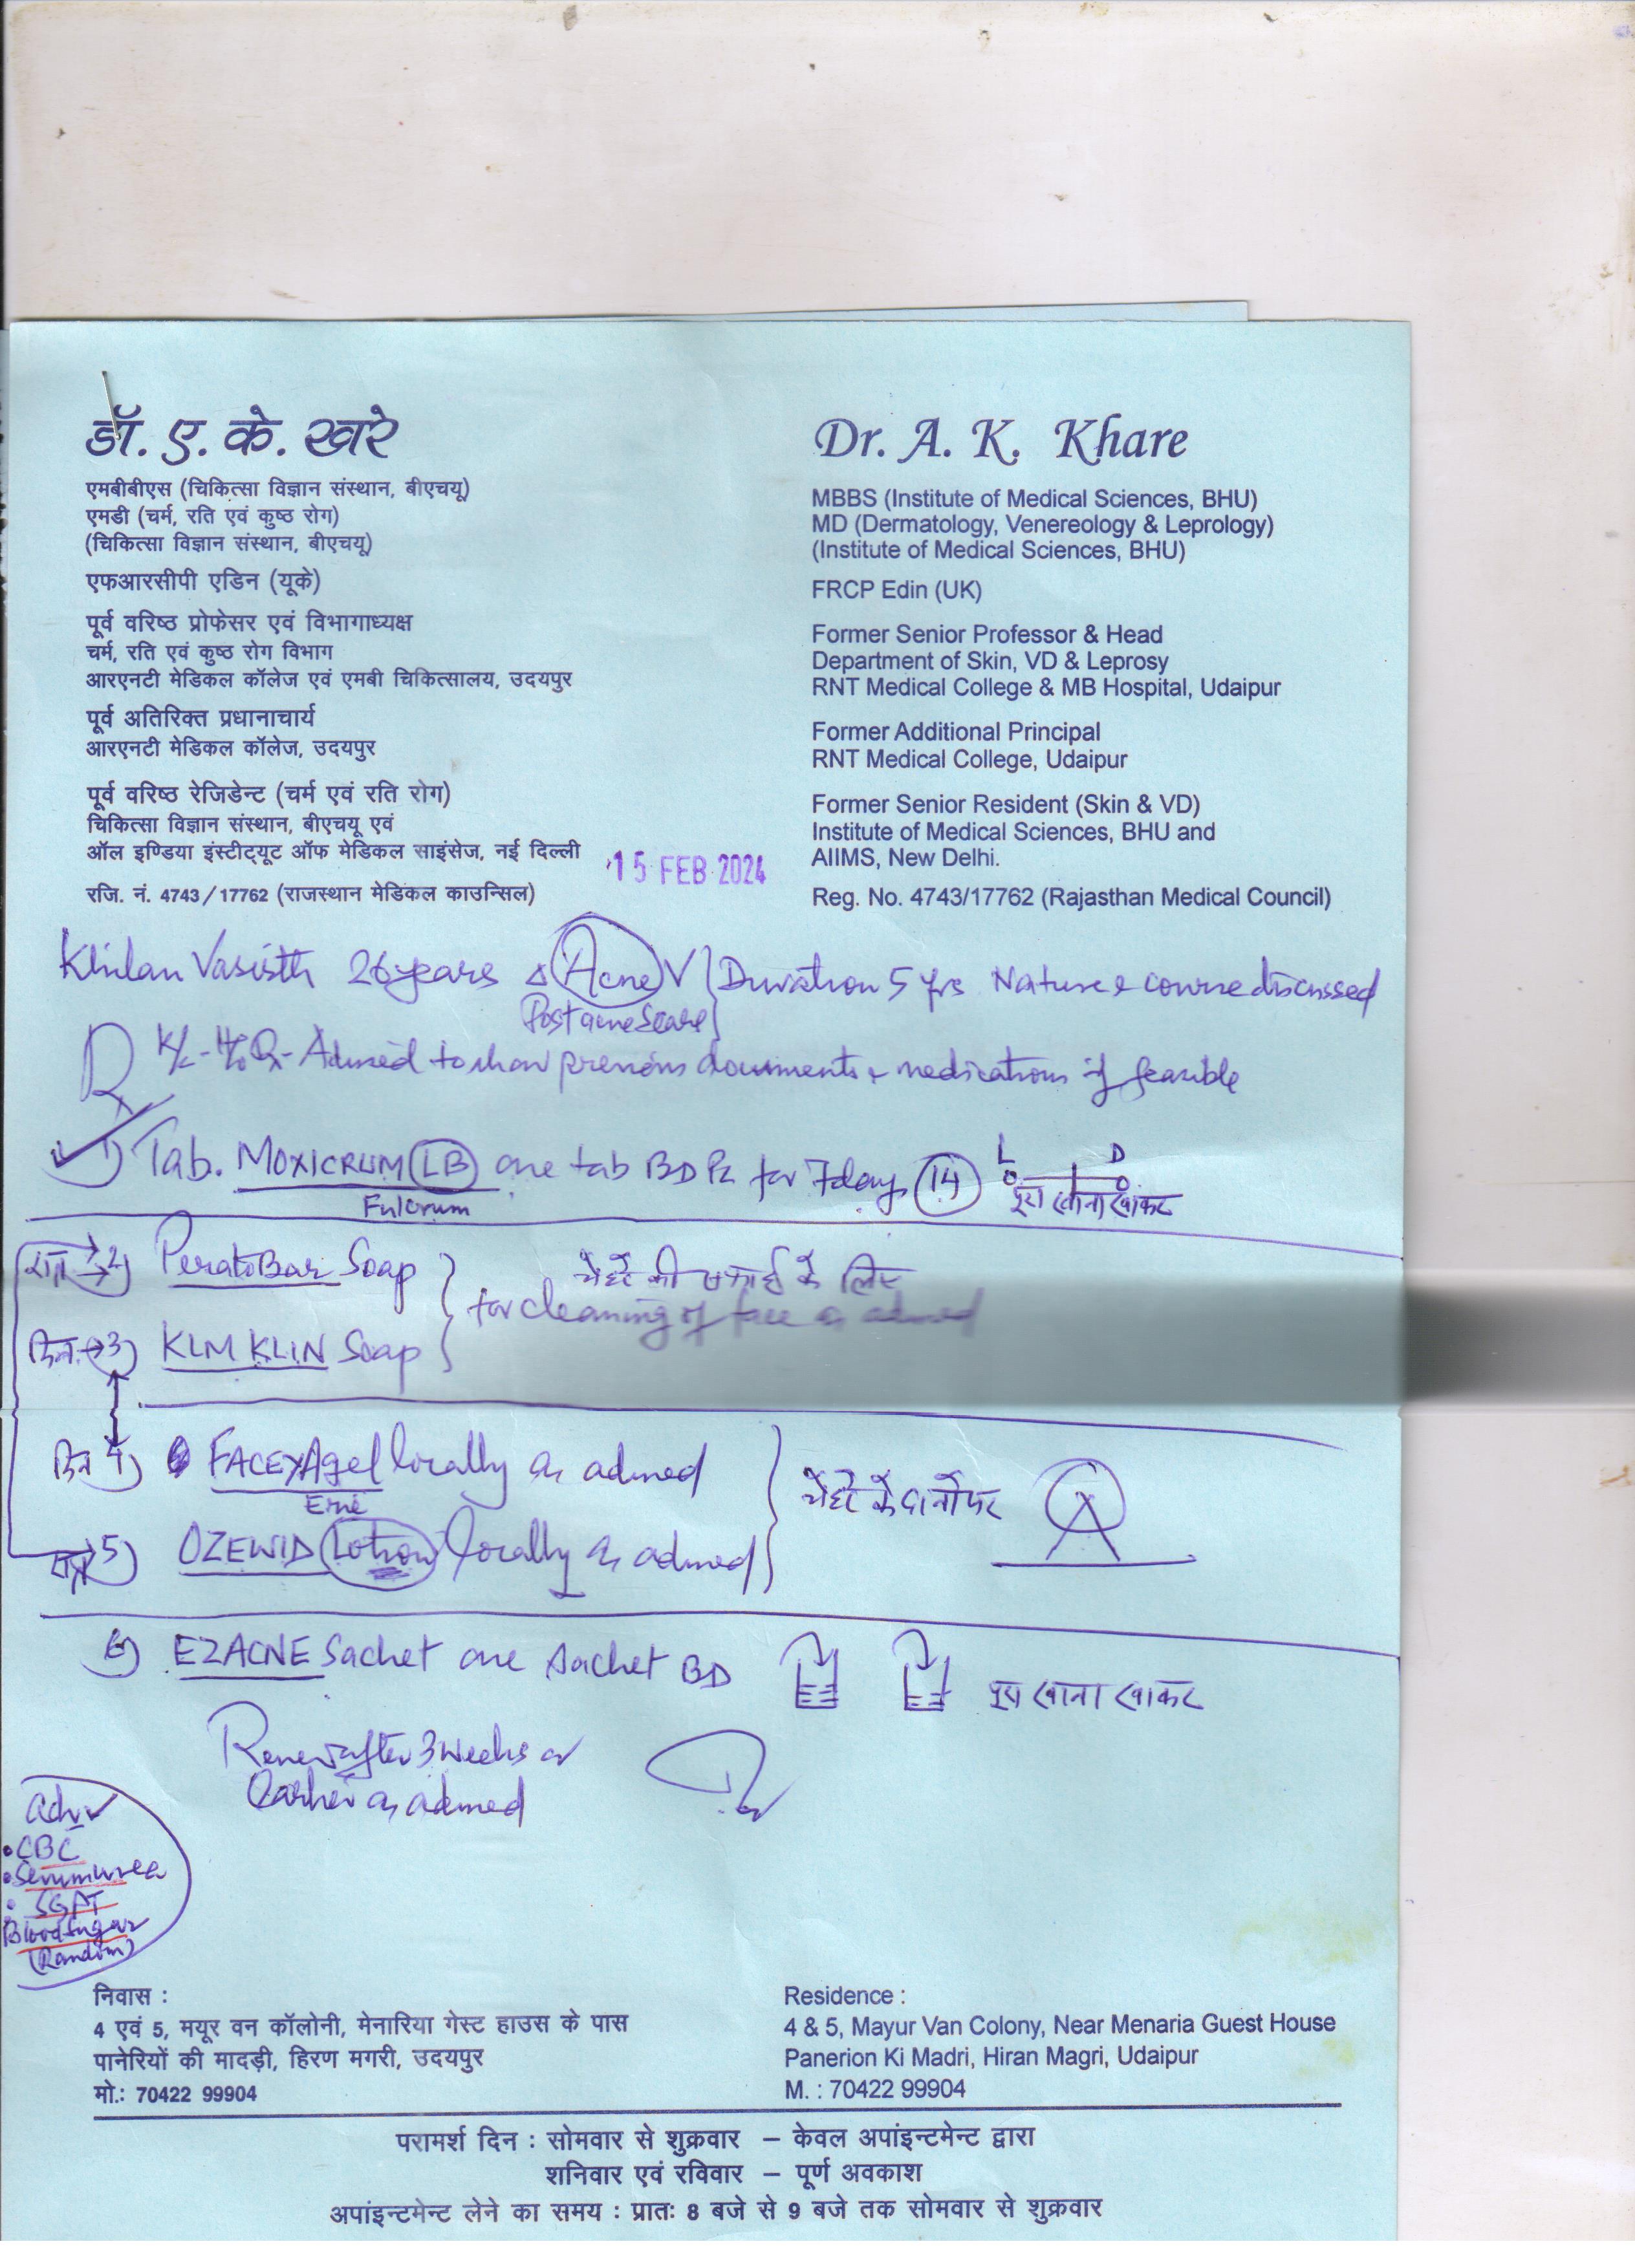 डॉ. ए. के. खरे
एमबीबीएस (चिकित्सा विज्ञान संस्थान, बीएचयू)
एमडी (चर्म, रति एवं कुष्ठ रोग)
(चिकित्सा विज्ञान संस्थान, बीएचयू)
एफआरसीपी एडिन (यूके)
पूर्व वरिष्ठ प्रोफेसर एवं विभागाध्यक्ष
चर्म, रति एवं कुष्ठ रोग विभाग
आरएनटी मेडिकल कॉलेज एवं एमबी चिकित्सालय, उदयपुर
पूर्व अतिरिक्त प्रधानाचार्य
आरएनटी मेडिकल कॉलेज, उदयपुर
पूर्व वरिष्ठ रेजिडेन्ट (चर्म एवं रति रोग)
चिकित्सा विज्ञान संस्थान, बीएचयू एवं
ऑल इण्डिया इंस्टीट्यूट ऑफ मेडिकल साइंसेज, नई दिल्ली
रजि. नं. 4743/17762 (राजस्थान मेडिकल काउन्सिल)
Dr. A. K. Khare
MBBS (Institute of Medical Sciences, BHU)
MD (Dermatology, Venereology & Leprology)
(Institute of Medical Sciences, BHU)
FRCP Edin (UK)
Former Senior Professor & Head
Department of Skin, VD & Leprosy
RNT Medical College & MB Hospital, Udaipur
Former Additional Principal
RNT Medical College, Udaipur
Former Senior Resident (Skin & VD)
Institute of Medical Sciences, BHU and
AIIMS, New Delhi.
Reg. No. 4743/17762 (Rajasthan Medical Council)
15 FEB 2024
Vasisth 26 years Δ Acne V } Duration 5 yrs Nature & course discussed
Post acne Scars
Rx - Advised to show previous documents & medications if feasible
1) Tab. MOXICRUM (LB) one tab BD for 7 days (14) L D
Fulcrum पूरा खाना खाकर
रात्रि → 2) PeratoBar Soap } चेहरे की सफाई के लिए
for cleaning of face as advised
दिन → 3) KLM KLIN Soap
दिन 4) FACEYA gel locally as advised
चेहरे के दानों पर
रात्रि 5) OZEWID (Lotion) locally as advised
6) EZACNE Sachet one sachet BD पूरा खाना खाकर
Review after 3 weeks or
Earlier as advised
adv
• CBC
• Serum urea
• SGPT
Blood Sugar
(Random)
निवास :
4 एवं 5, मयूर वन कॉलोनी, मेनारिया गेस्ट हाउस के पास
पानेरियों की मादड़ी, हिरण मगरी, उदयपुर
मो.: 70422 99904
Residence :
4 & 5, Mayur Van Colony, Near Menaria Guest House
Panerion Ki Madri, Hiran Magri, Udaipur
M. : 70422 99904
परामर्श दिन : सोमवार से शुक्रवार – केवल अपांइन्टमेन्ट द्वारा
शनिवार एवं रविवार – पूर्ण अवकाश
अपांइन्टमेन्ट लेने का समय : प्रातः 8 बजे से 9 बजे तक सोमवार से शुक्रवार